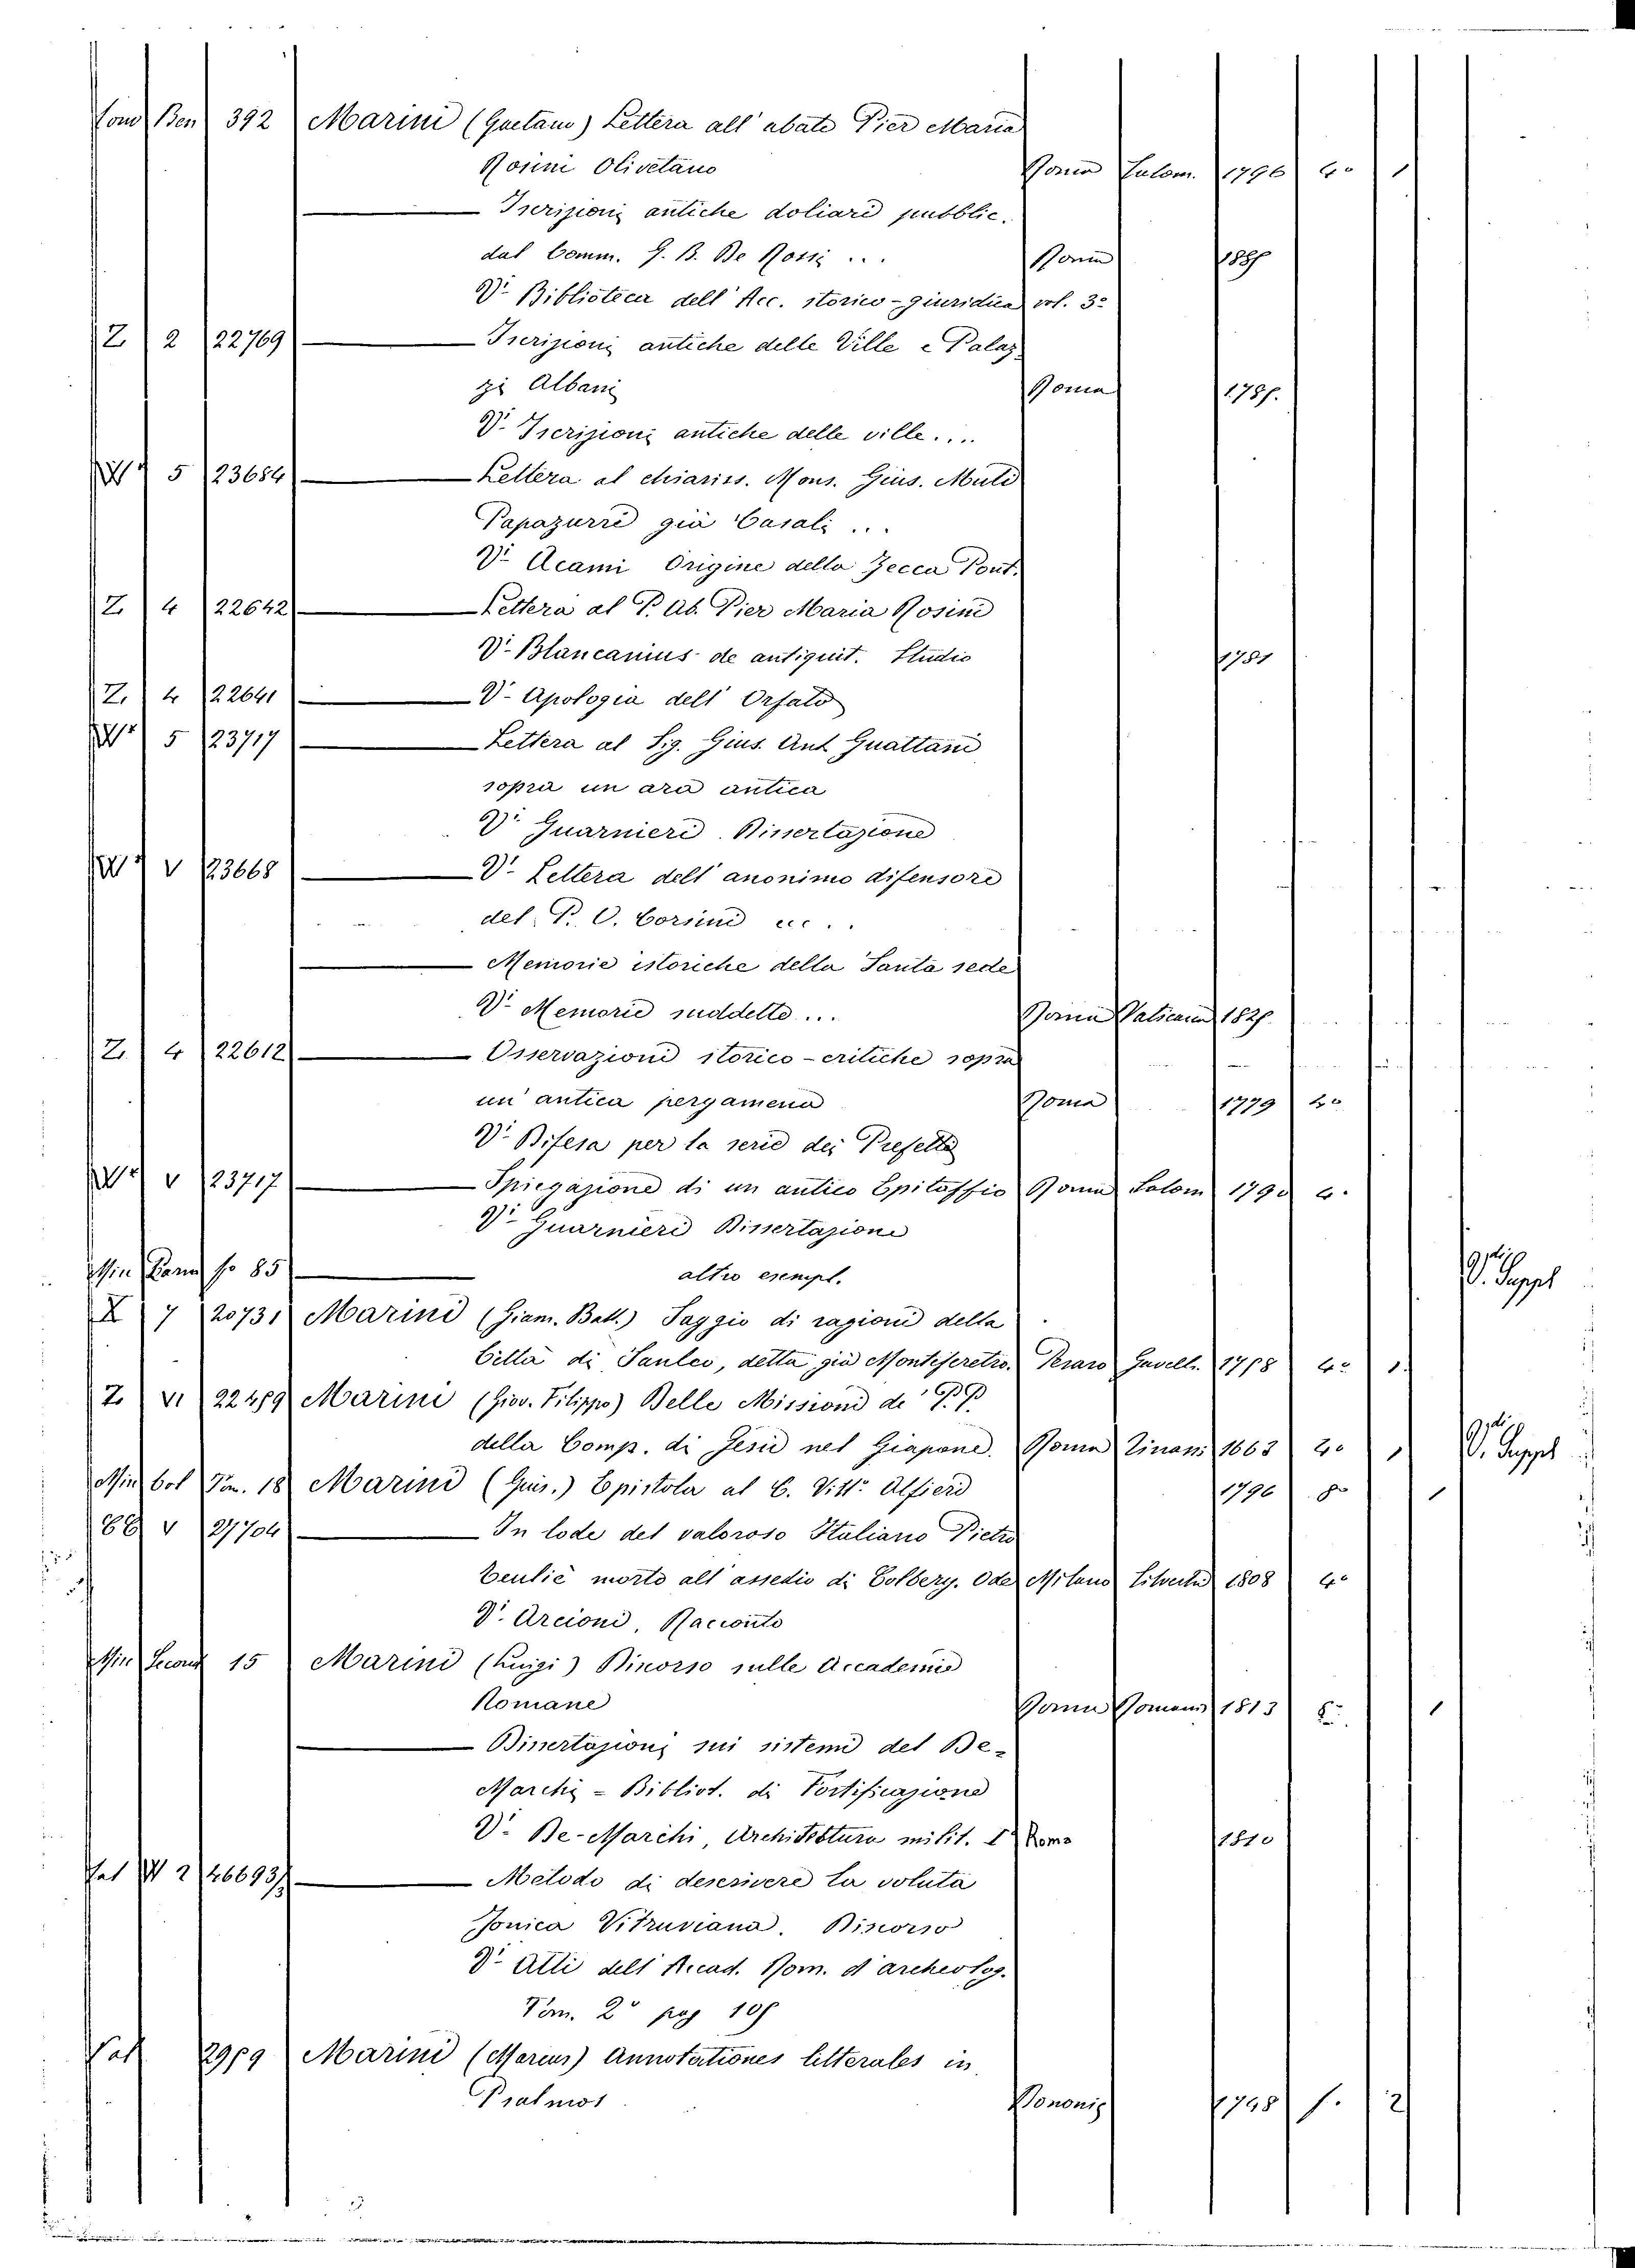 Fond Ben 392 Marini (Gaetano) Lettera all' abate Pier Maria
Rosini Olivetano Roma Salom. 1796 4° 1
Iscrizioni antiche doliari pubblic.
dal Comm. G. B. De Rossi ... Roma 1885
V. Biblioteca dell' Acc. storico-giuridica vol. 3°
Z 2 22769 Iscrizioni antiche delle Ville e Palaz
zi Albani Roma 1785.
V. Iscrizioni antiche delle ville....
5 23684 Lettera al chiariss. Mons. Gius. Muti
Papazurri già Casali ...
V. Acami Origine della Zecca Pont.
Z. 4 22642 Lettera al P. Ab. Pier Maria Rosini
V. Blancanius de antiquit. Studio 1781
Z. 4 22641 V. Apologia dell' Orfato
5 23717 Lettera al Sig. Gius. Ant Guattani
sopra un ara antica
V. Guarnieri Dissertazione
V 23668 V. Lettera dell' anonimo difensore
del P. O. Corsini ecc...
Memorie istoriche della Santa sede
V. Memorie suddette ... Roma Vaticana 1825
Z. 4 22612 Osservazioni storico-critiche sopra
un' antica pergamena Roma 1779 4°
V. Difesa per la serie dei Prefetti
V 23717 Spiegazione di un antico Epitaffio Roma Salom 1790 4°
V. Guarnieri Dissertazione
Min 85 altro esempl.
X 7 20731 Marini (Giam. Batt.) Saggio di ragioni della V. Suppl
Città di Sanleo, detta già Monteferetro. Pesaro Gavelli. 1758 4° 1.
Z. VI 22459 Marini (Giov. Filippo) Delle Missioni de' P.P.
della Comp. di Gesù nel Giapone. Roma Tinassi 1663 4° 1 V. Suppl
Min bol Tom. 18 Marini (Gius.) Epistola al C. Vitt. Alfieri 1796 8° 1
V 27704 In lode del valoroso Italiano Pietro
Teuliè morto all' assedio di Colberg. Ode Milano Silvestri 1808 4°
V. Arcioni, Racconto
Min Second 15 Marini (Luigi) Discorso sulle Accademie
Romane Roma Romanis 1813 8. 1
Dissertazioni sui sistemi del De-
Marchi - Bibliot. di Fortificazione
V. De-Marchi, Architettura milit. Roma 1810
Fal W 2 46693 Metodo di descrivere la voluta
Jonica Vitruviana. Discorso
V. Atti dell' Accad. Rom. d'archeolog.
Tom. 2° pag 105
Fal 2959 Marini (Marcus) Annotationes litterales in
Psalmos Bononiæ 1748 f. 2